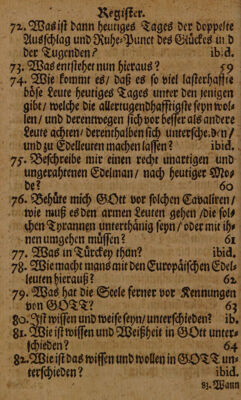 Register.
72. Was ist dann heutiges Tages der doppelte
Ausschlag und Ruhe-Punct des Glückes in d
der Tugenden? ibid.
73. Was entstehet nun hieraus? 59
74. Wie kommt es/ daß es so viel lasterhaffte
böse Leute heutiges Tages unter den jenigen
gibt/ welche die allertugendhafftigste seyn wol-
len/ und derentwegen sich vor besser als andere
Leute achten/ derenthalben sich unterscheiden/
und zu Edelleuten machen lassen? ibid.
75. Beschreibe mir einen recht unartigen und
ungerahtenen Edelman/ nach heutiger Mo-
de? 60
76. Behüte mich GOtt vor solchen Cavaliren/
wie muß es den armen Leuten gehen/ die sol-
chen Tyrannen unterthänig seyn/ oder mit ih-
nen umgehen müssen? 61
77. Was in Türckey thun? ibid.
78. Wie macht mans mit den Europäischen Edel-
leuten hierauß? 62
79. Was hat die Seele ferner vor Kennungen
von GOTT? 63
80. Ist wissen und weise seyn/ unterschieden? ib.
81. Wie ist wissen und Weißheit in GOtt unter-
schieden? 64
82. Wie ist das wissen und wollen in GOTT un-
terschieden? ibid.
83. Wann